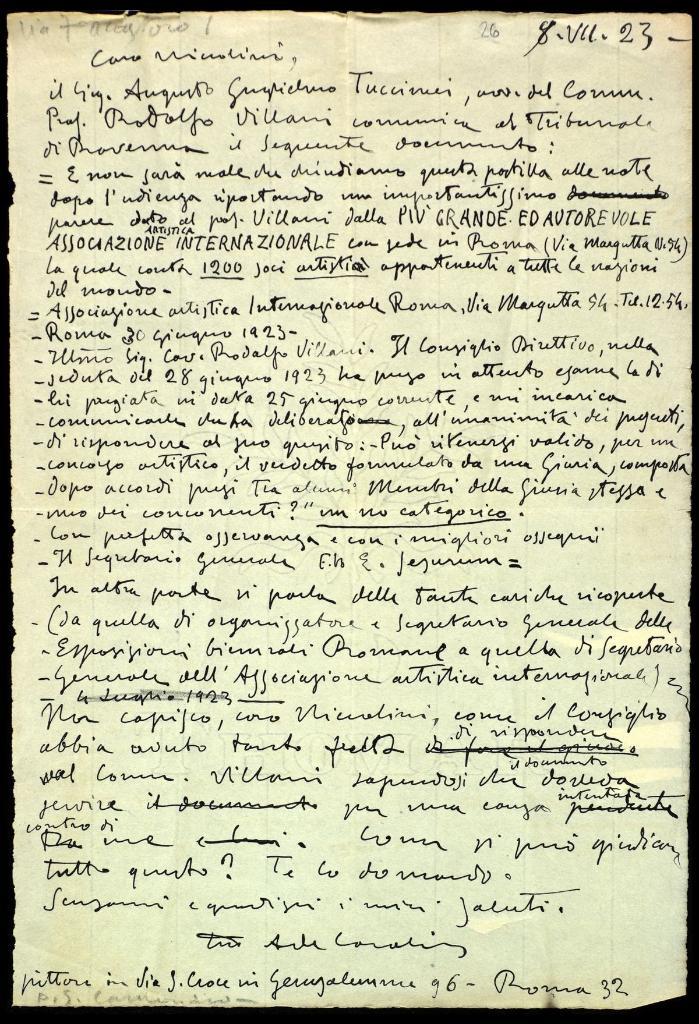 26 8.VII.23 -
Caro Nicolini,
il Sig. Augusto Guglielmo Tuccimei, avv. del Comm.
Prof. Rodolfo Villani comunica al Tribunale
di Ravenna il seguente documento:
= E non sarà male che chiudiamo questa postilla alle note
dopo l'udienza riportando un importantissimo documento
parere dato al prof. Villani dalla PIÙ GRANDE ED AUTOREVOLE
ASSOCIAZIONE ARTISTICA INTERNAZIONALE con sede in Roma (Via Margutta N. 54)
la quale conta 1200 soci artisti appartenenti a tutte le nazioni
del mondo -
= Associazione artistica Internazionale Roma, Via Margutta 54. Tel. 12.54.
- Roma 30 giugno 1923 -
- Ill/mo Sig. Cav. Rodolfo Villani. Il Consiglio Direttivo, nella
- seduta del 28 giugno 1923 ha preso in attento esame la di
- lei pregiata in data 25 giugno corrente, e mi incarica
- comunicarle che ha deliberato, all'unanimità dei presenti,
- di rispondere al suo quesito: - Può ritenersi valido, per un
- concorso artistico, il verdetto formulato da una Giuria, composta
- dopo accordi presi tra alcuni Membri della Giuria stessa e
- uno dei concorrenti?" un no categorico.
- Con perfetta osservanza e con i migliori ossequi
- Il Segretario Generale F.to E. Jesurum =
In altra parte si parla delle tante cariche ricoperte
- (da quella di organizzatore e Segretario Generale delle
- Esposizioni biennali Romane a quella di Segretario
- Generale dell'Associazione artistica internazionale)
- 4 Luglio 1923 -
Non capisco, caro Nicolini, come il Consiglio
abbia avuto tanta fretta di rispondere
al Comm. Villani sapendosi che il documento doveva
servire il documento per una causa intentata pendente
contro di me e lui. Come si può giudicare
tutto questo? Te lo domando.
Scusami e gradisci i miei saluti.
tuo
pittore in Via S. Croce in Gerusalemme 96 - Roma 32